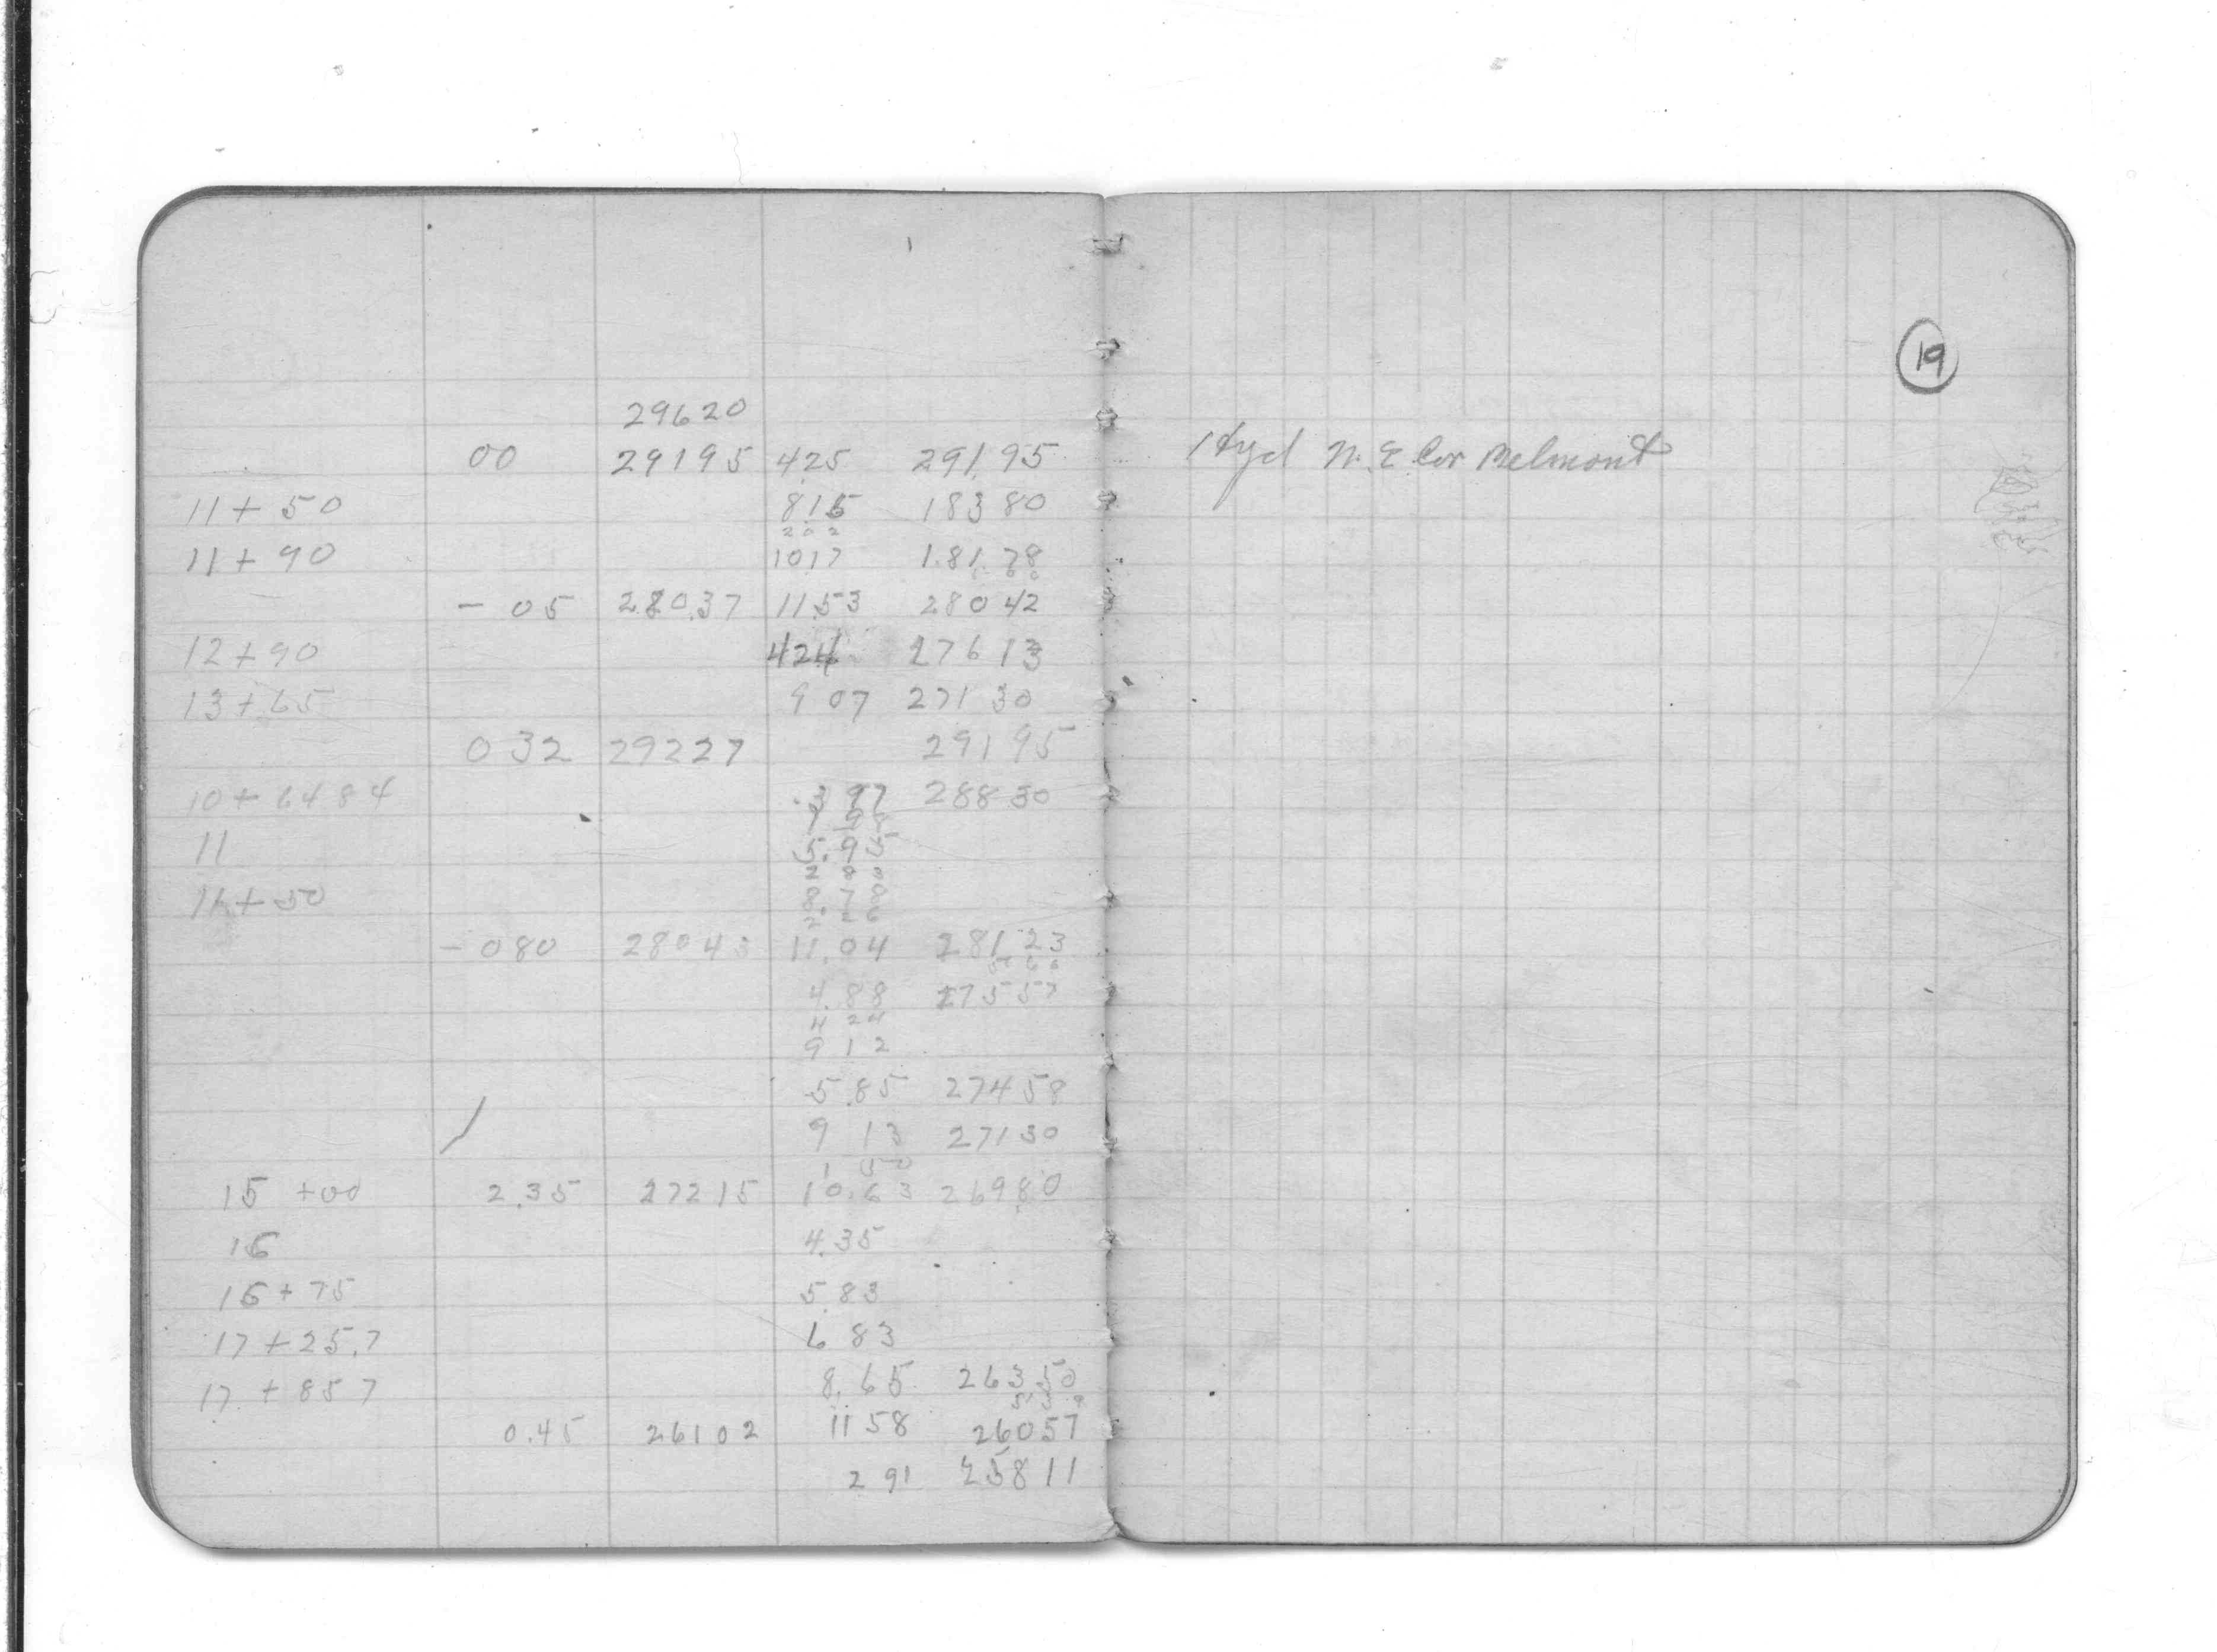 19
29620
00 29195 425 291.95 Hyd N. E Cor Belmont
11+ 50 815 18380
202
11+ 90 1017 1.81.78
- 05 280.37 11.53 28042
12+90 424 27613
13+65 9 07 27130
0 32 29227 29195
10+6484 3 97 28830
11 5.95
2 80
11+50 8.70
- 080 28043 11.04 281 23
4.88 27557
4 24
9 12
5.85 27458
9 13 27130
1 50
15 +00 2.35 27215 10.63 26980
16 4.35
16+75 5.83
17+25.7 6 83
17+857 8.65 26350
0.45 26102 11 58 26057
2 91 25811